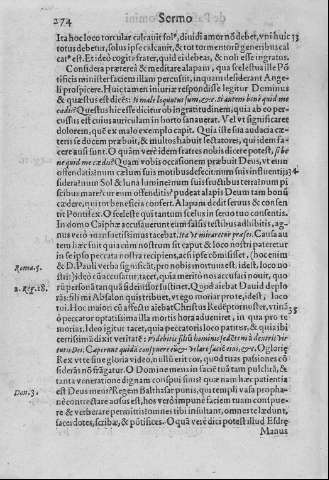 274 Sermo
Ita hoc torcular calcauit solus, diuidi amor nõ debet, vni huic 33
totus debetur, solus ipse calcauit, & tot tormentorũ generibus cal
catus est. Et ideò cogita frater, quid ei debeas, & noli esse ingratus.
Considera prætereà & meditare alapam, qua scelestus ille Põ
tificis minister faciem illam percussit, in quam desiderant Ange-
li prospicere. Huic tamen iniuriæ respondisse legitur Dominus
& quæstus est dicẽs: si malè loquutus sum, &c. si autem bene quid me
cædis? Quæstus hic esse dicitur ob ingratitudinem, quia ab eo per-
cussus est cuius auriculam in horto sanauerat. Vel vt significaret
dolorem, quẽ ex malo exemplo capit. Quia iste sua audacia cæ-
teris se ducem præbuit, & multos habuit sectatores, qui idem fa-
cere ausi sunt. O quàm verè idem fratres nobis dicere potest, si be
ne quid me cædis? Quam vobis occasionem præbuit Deus, vt eum
offendatis? an cælum suis motibus defecit? num suis influentijs 34
sideratũ? num Sol & luna luminei? num suis fructibus terra? num pi
scibus mare? cur eum offenditis? pudeat alapis Deum tam bonũ
cædere, qui tot beneficia confert. Alapum dedit seruus & consen
tit Pontifex. O sceleste qui tantum scelus in seruo tuo consentis.
In domo Caiphæ accusauerunt eum falsis testibus adhibitis, ag-
nus verò mansuetissimus tacebat, ita vt miraretur præses. Causa au
tem hæc fuit quia cùm nostrum sit caput & loco nostri pateretur
in se ipso peccata nostra recipiens, acsi ipse cõmisisset, (hoc enim
Roma. 5. & D. Pauli verba significãt, pro nobis mortuus est. idest, loco no
stri:) ideò cùm accusatur, tacet, quia meritò nos accusari nouit, quo
2. Reg. 18. rũ personã tanquã fideiussor sustinet. Quod aiebat Dauid deplo-
rãs: fili mi Absalon quis tribuet, vt ego moriar pro te, idest, loco
tui. Hoc maiori cũ affectu aiebat Christus Redemptor noster, vtinã 35
ò peccator optatissimo illa mortis hora adueniret, in qua pro te
moriar. Ideo igitur tacet, quia peccatoris loco patitur, & quia ibi
certissimã dixit veritatẽ: videbitis filiũ hominis sedẽtem à dextris vir
tutis Dei. Cæperunt quidã conspuere eum & velare faciẽ eius, &c. O glorię
Rex vtre sine gloria video, nullũ error, quòd tuas passiones cõ
siderãs nõ fragatur. O Domine meus in facie tuâ tam pulchrâ, &
tanta veneratione dignam conspui sinis? quæ nam hæc patientia
est Deus meus? Regem Balthasar punis, quia templi vasa propha-
Dan. 3. nè contrectare ausus est, hos verò impunè faciem tuam conspue-
re & verberare permittis? omnes tibi insultant, omnes te lædunt,
sacerdotes, scribæ, & põtifices. O quàm verè dici potest illud Esdræ
Manus